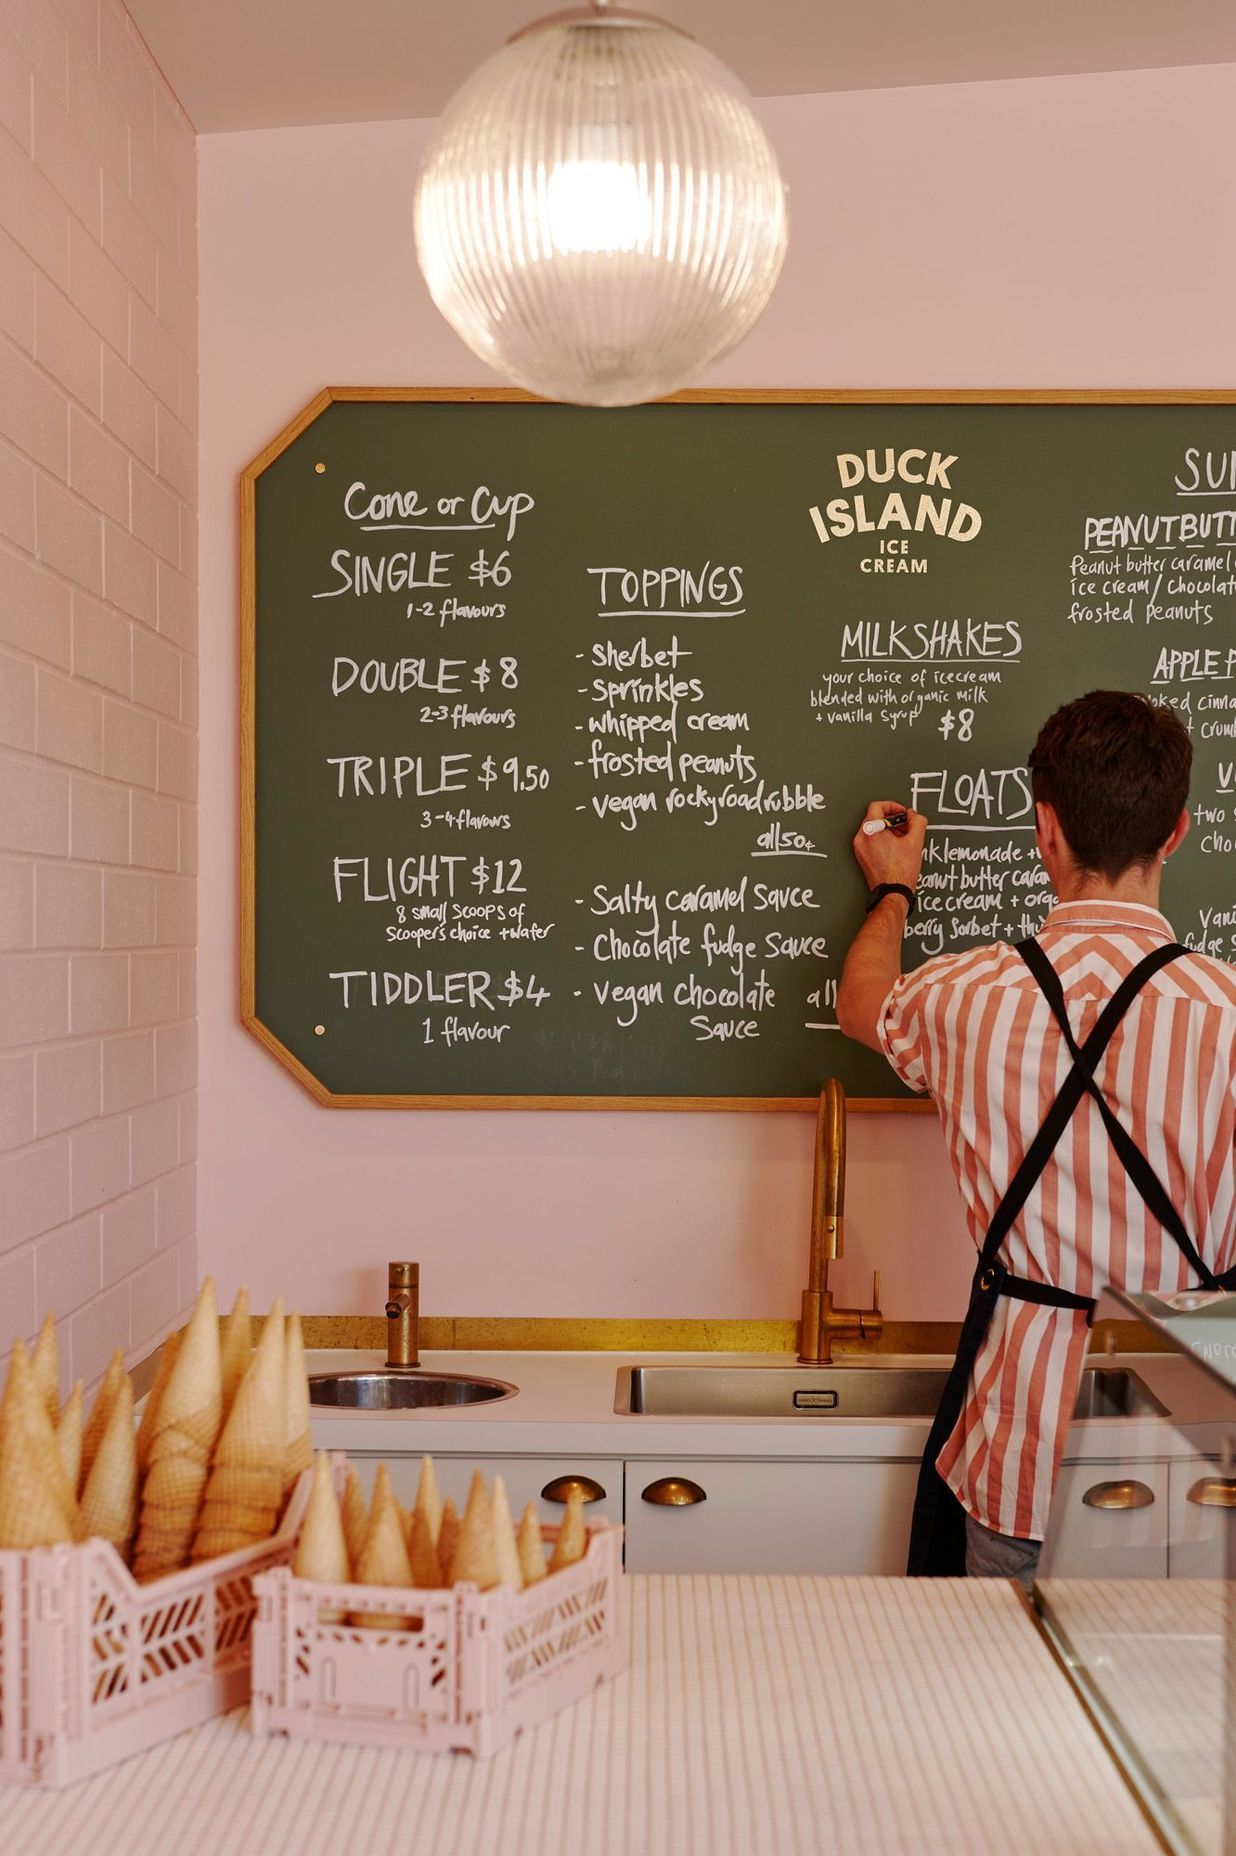 Cone or Cup
SINGLE $6
1-2 flavours
DOUBLE $8
2-3 flavours
TRIPLE $9.50
3-4 flavours
FLIGHT $12
8 small scoops of
scoopers choice + wafer
TIDDLER $4
1 flavour
TOPPINGS
- Sherbet
- Sprinkles
- whipped cream
- frosted peanuts
- vegan rocky road rubble
all 50c
- Salty caramel Sauce
- Chocolate fudge Sauce
- Vegan chocolate
Sauce
all
DUCK
ISLAND
ICE
CREAM
MILKSHAKES
your choice of icecream
blended with organic milk
+ vanilla syrup $8
FLOATS
lemonade +
peanut butter
ice cream +
berry Sorbet +
SUN
PEANUT BUTT
Peanut butter caramel
ice cream / Chocolat
frosted peanuts
APPLE P
oked cinna
crum
V
two
Cho
Vani
fudge S